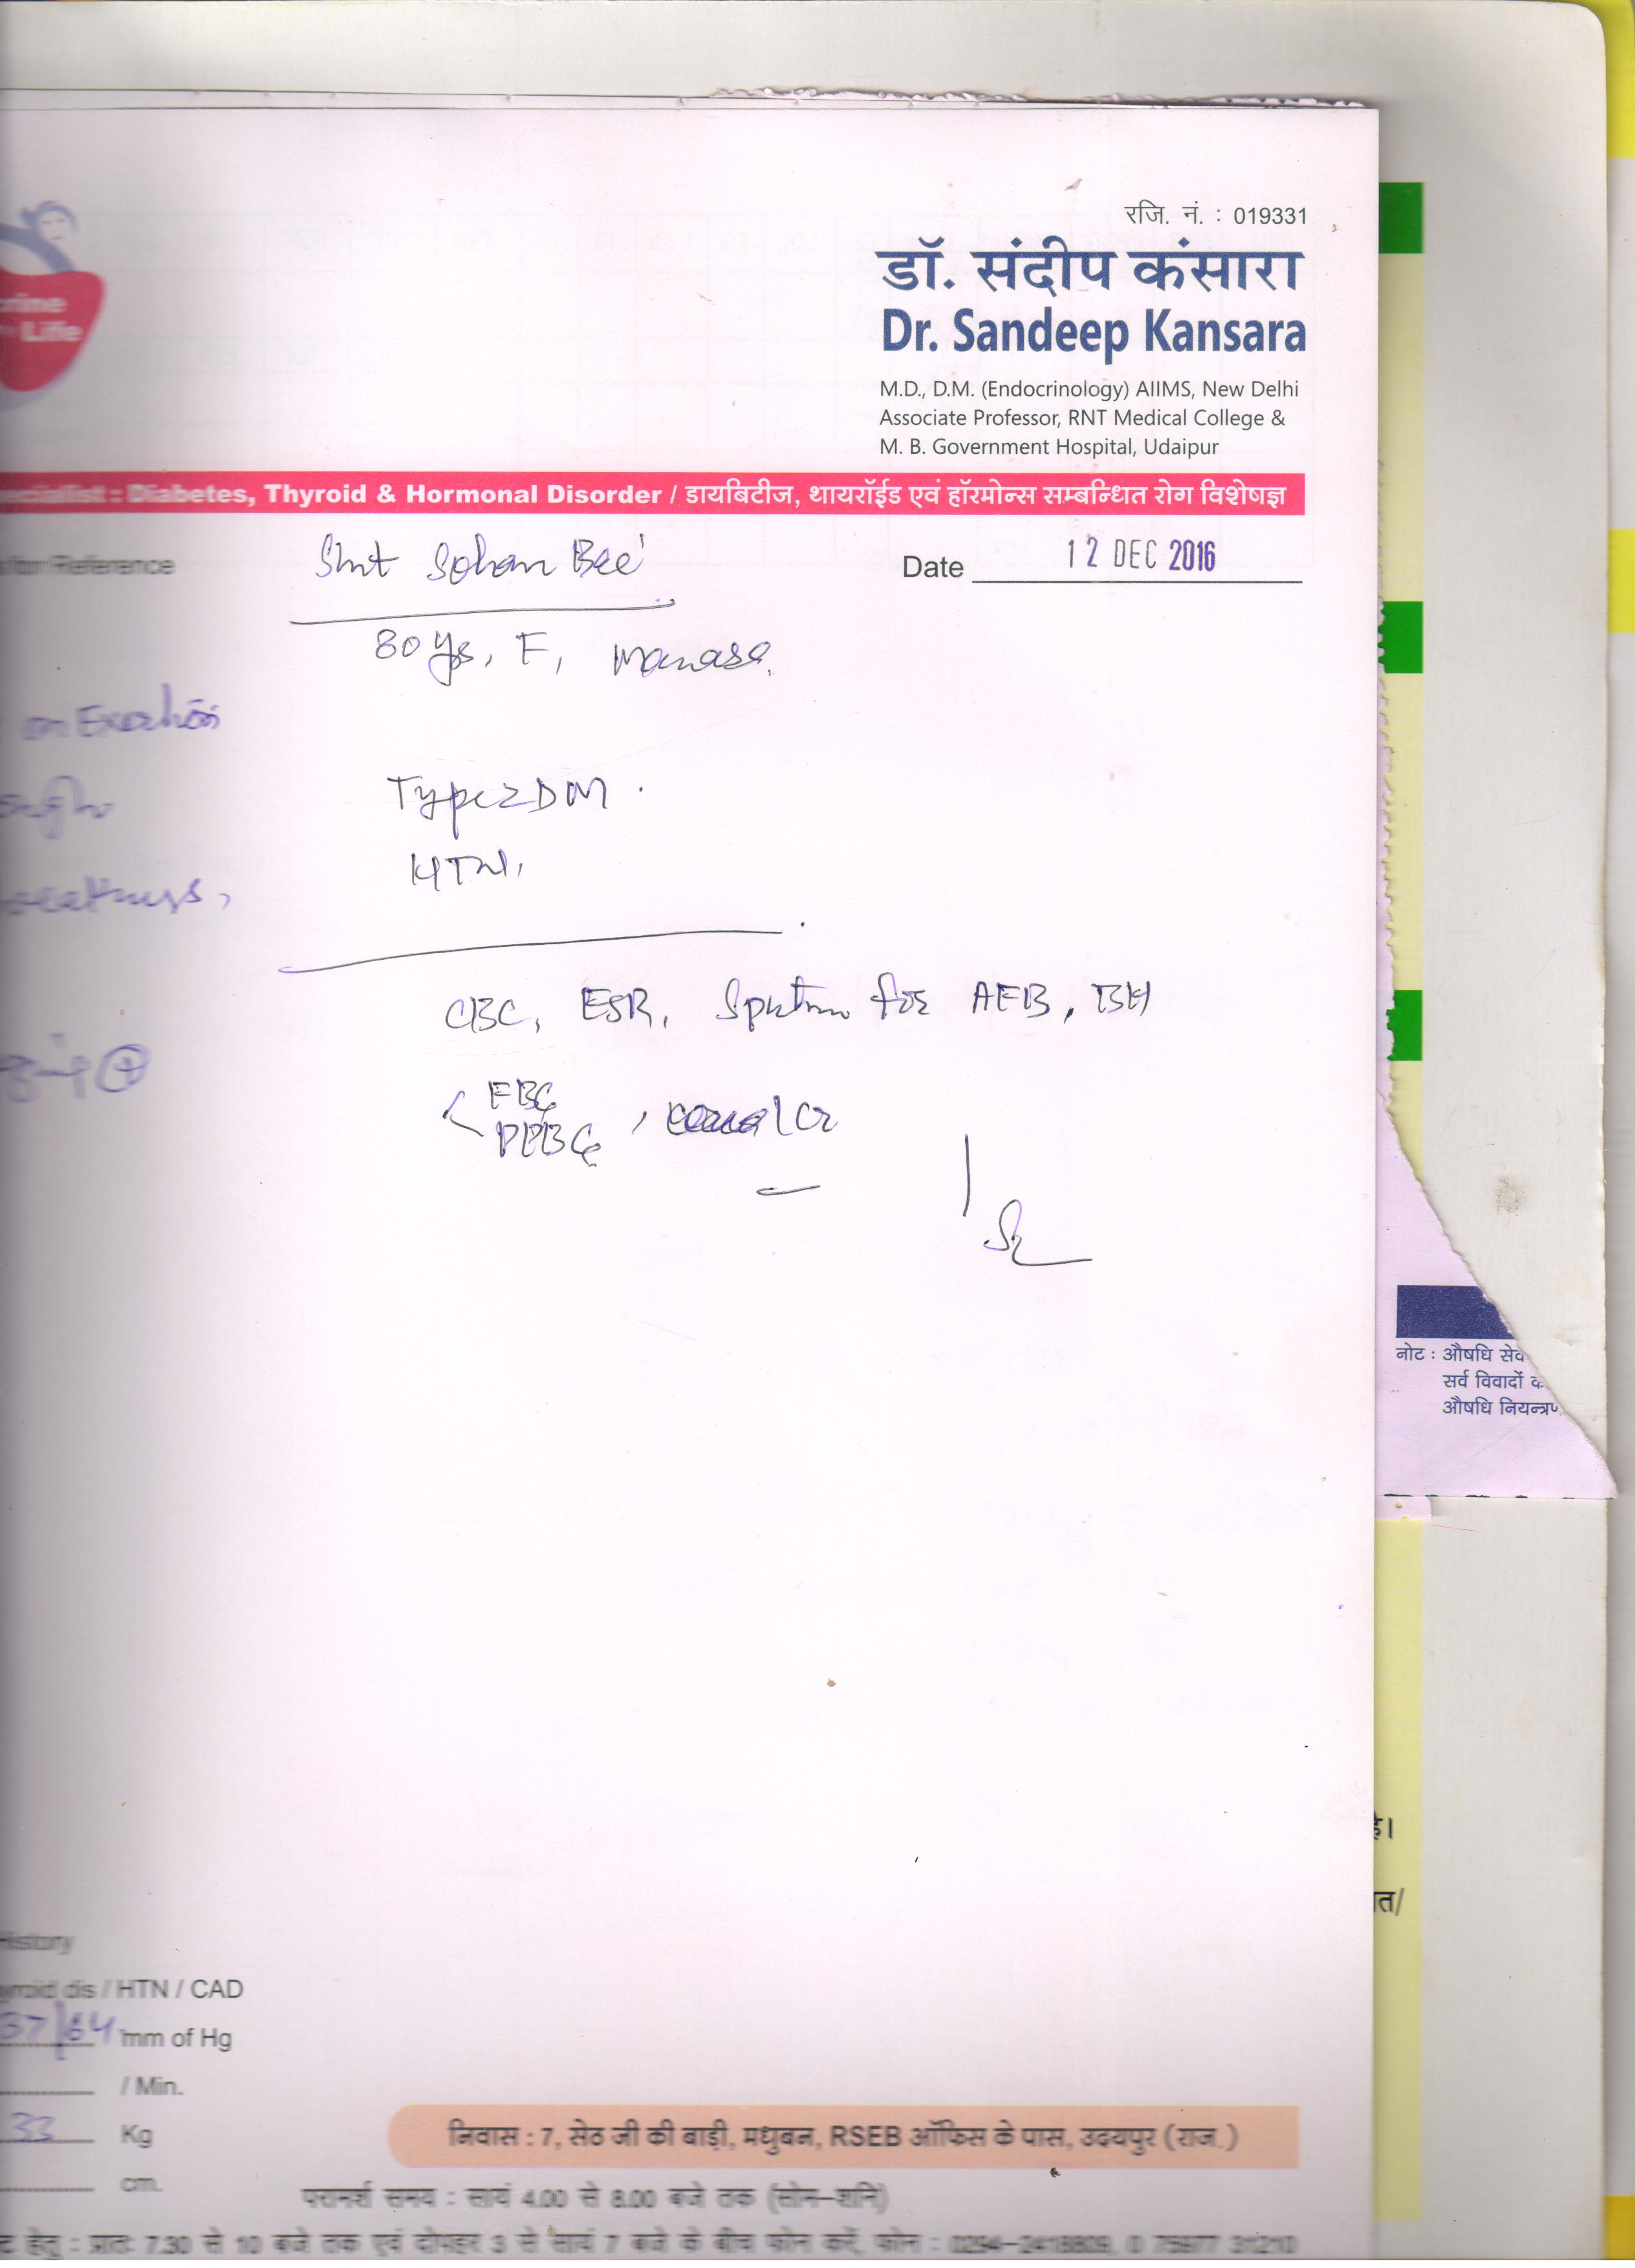 रजि. नं. : 019331
डॉ. संदीप कंसारा
Dr. Sandeep Kansara
M.D., D.M. (Endocrinology) AIIMS, New Delhi
Associate Professor, RNT Medical College &
M. B. Government Hospital, Udaipur
Life
: Diabetes, Thyroid & Hormonal Disorder / डायबिटीज, थायरॉईड एवं हॉरमोन्स सम्बन्धित रोग विशेषज्ञ
for Reference
Smt Sohan Bee
Date 12 DEC 2016
80 ys, F, Manasa
on Exertion
Type 2 DM
HTN,
CBC, ESR, Sputum for AFB, BH
FBG
PPBG , Cr
नोट : औषधि
सर्व विवादों
है।
History
dis / HTN / CAD
/64 mm of Hg
/ Min.
33 Kg
cm.
निवास : 7, सेठ जी की बाड़ी, मधुबन, RSEB ऑफिस के पास, उदयपुर (राज.)
परामर्श समय : सायं 4.00 से 8.00 बजे तक (सोम-शनि)
हेतु : प्रातः 7.30 से 10 बजे तक एवं दोपहर 3 से सायं 7 बजे के बीच फोन करें, फोन :